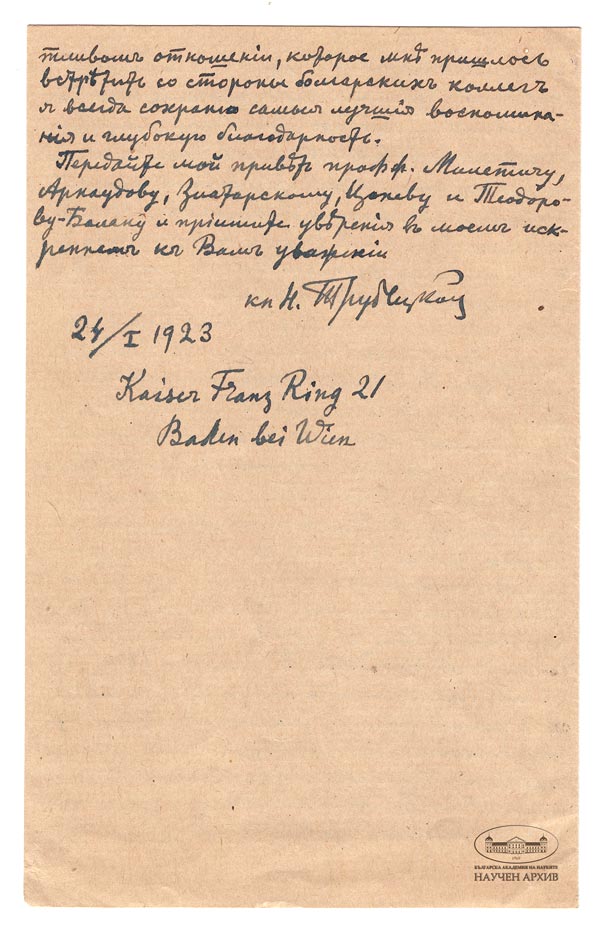 тливомъ отношеніи, которое мнѣ пришлось
встрѣтить со стороны болгарскихъ коллегъ
я всегда сохраню самыя лучшія воспомина-
нія и глубокую благодарность.
Передайте мой привѣтъ профф. Милетичу,
Арнаудову, Златарскому, Цоневу и Теодоро-
ву-Балану и примите увѣренія въ моемъ иск-
реннемъ къ Вамъ уваженіи
кн Н. Трубецкой
24/I 1923
Kaiser Franz Ring 21
Baden bei Wien
БЪЛГАРСКА АКАДЕМИЯ НА НАУКИТЕ
НАУЧЕН АРХИВ